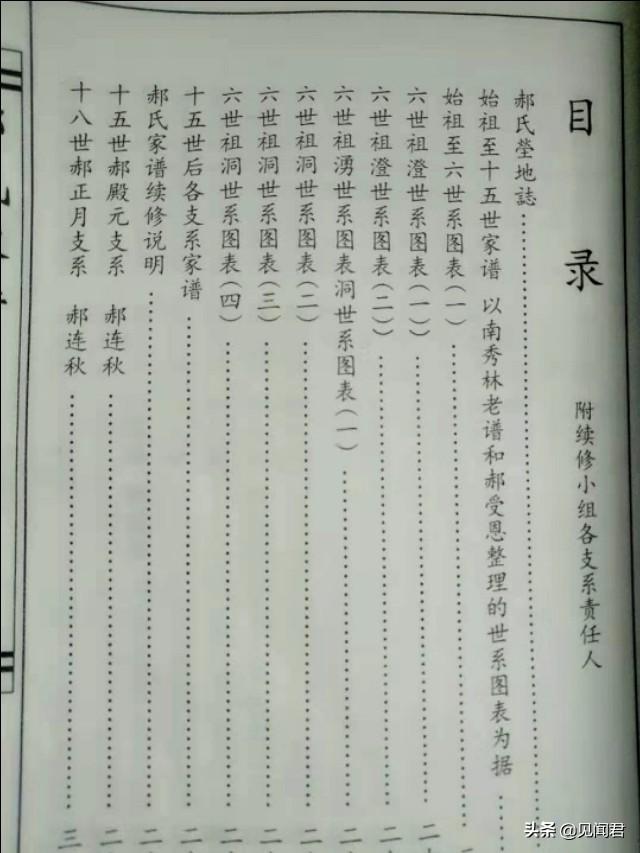 目录
附续修小组各支系责任人
郝氏茔地誌
始祖至十五世家谱 以南秀林老谱和郝受恩整理的世系图表为据
始祖至六世系图表(一)
六世祖澄世系图表(一)
六世祖澄世系图表(二)
六世祖湧世系图表洞世系图表(一)
六世祖洞世系图表(二)
六世祖洞世系图表(三)
六世祖洞世系图表(四)
十五世后各支系家谱
郝氏家谱续修说明
十五世郝殿元支系 郝连秋
十八世郝正月支系 郝连秋
头条 @见闻君